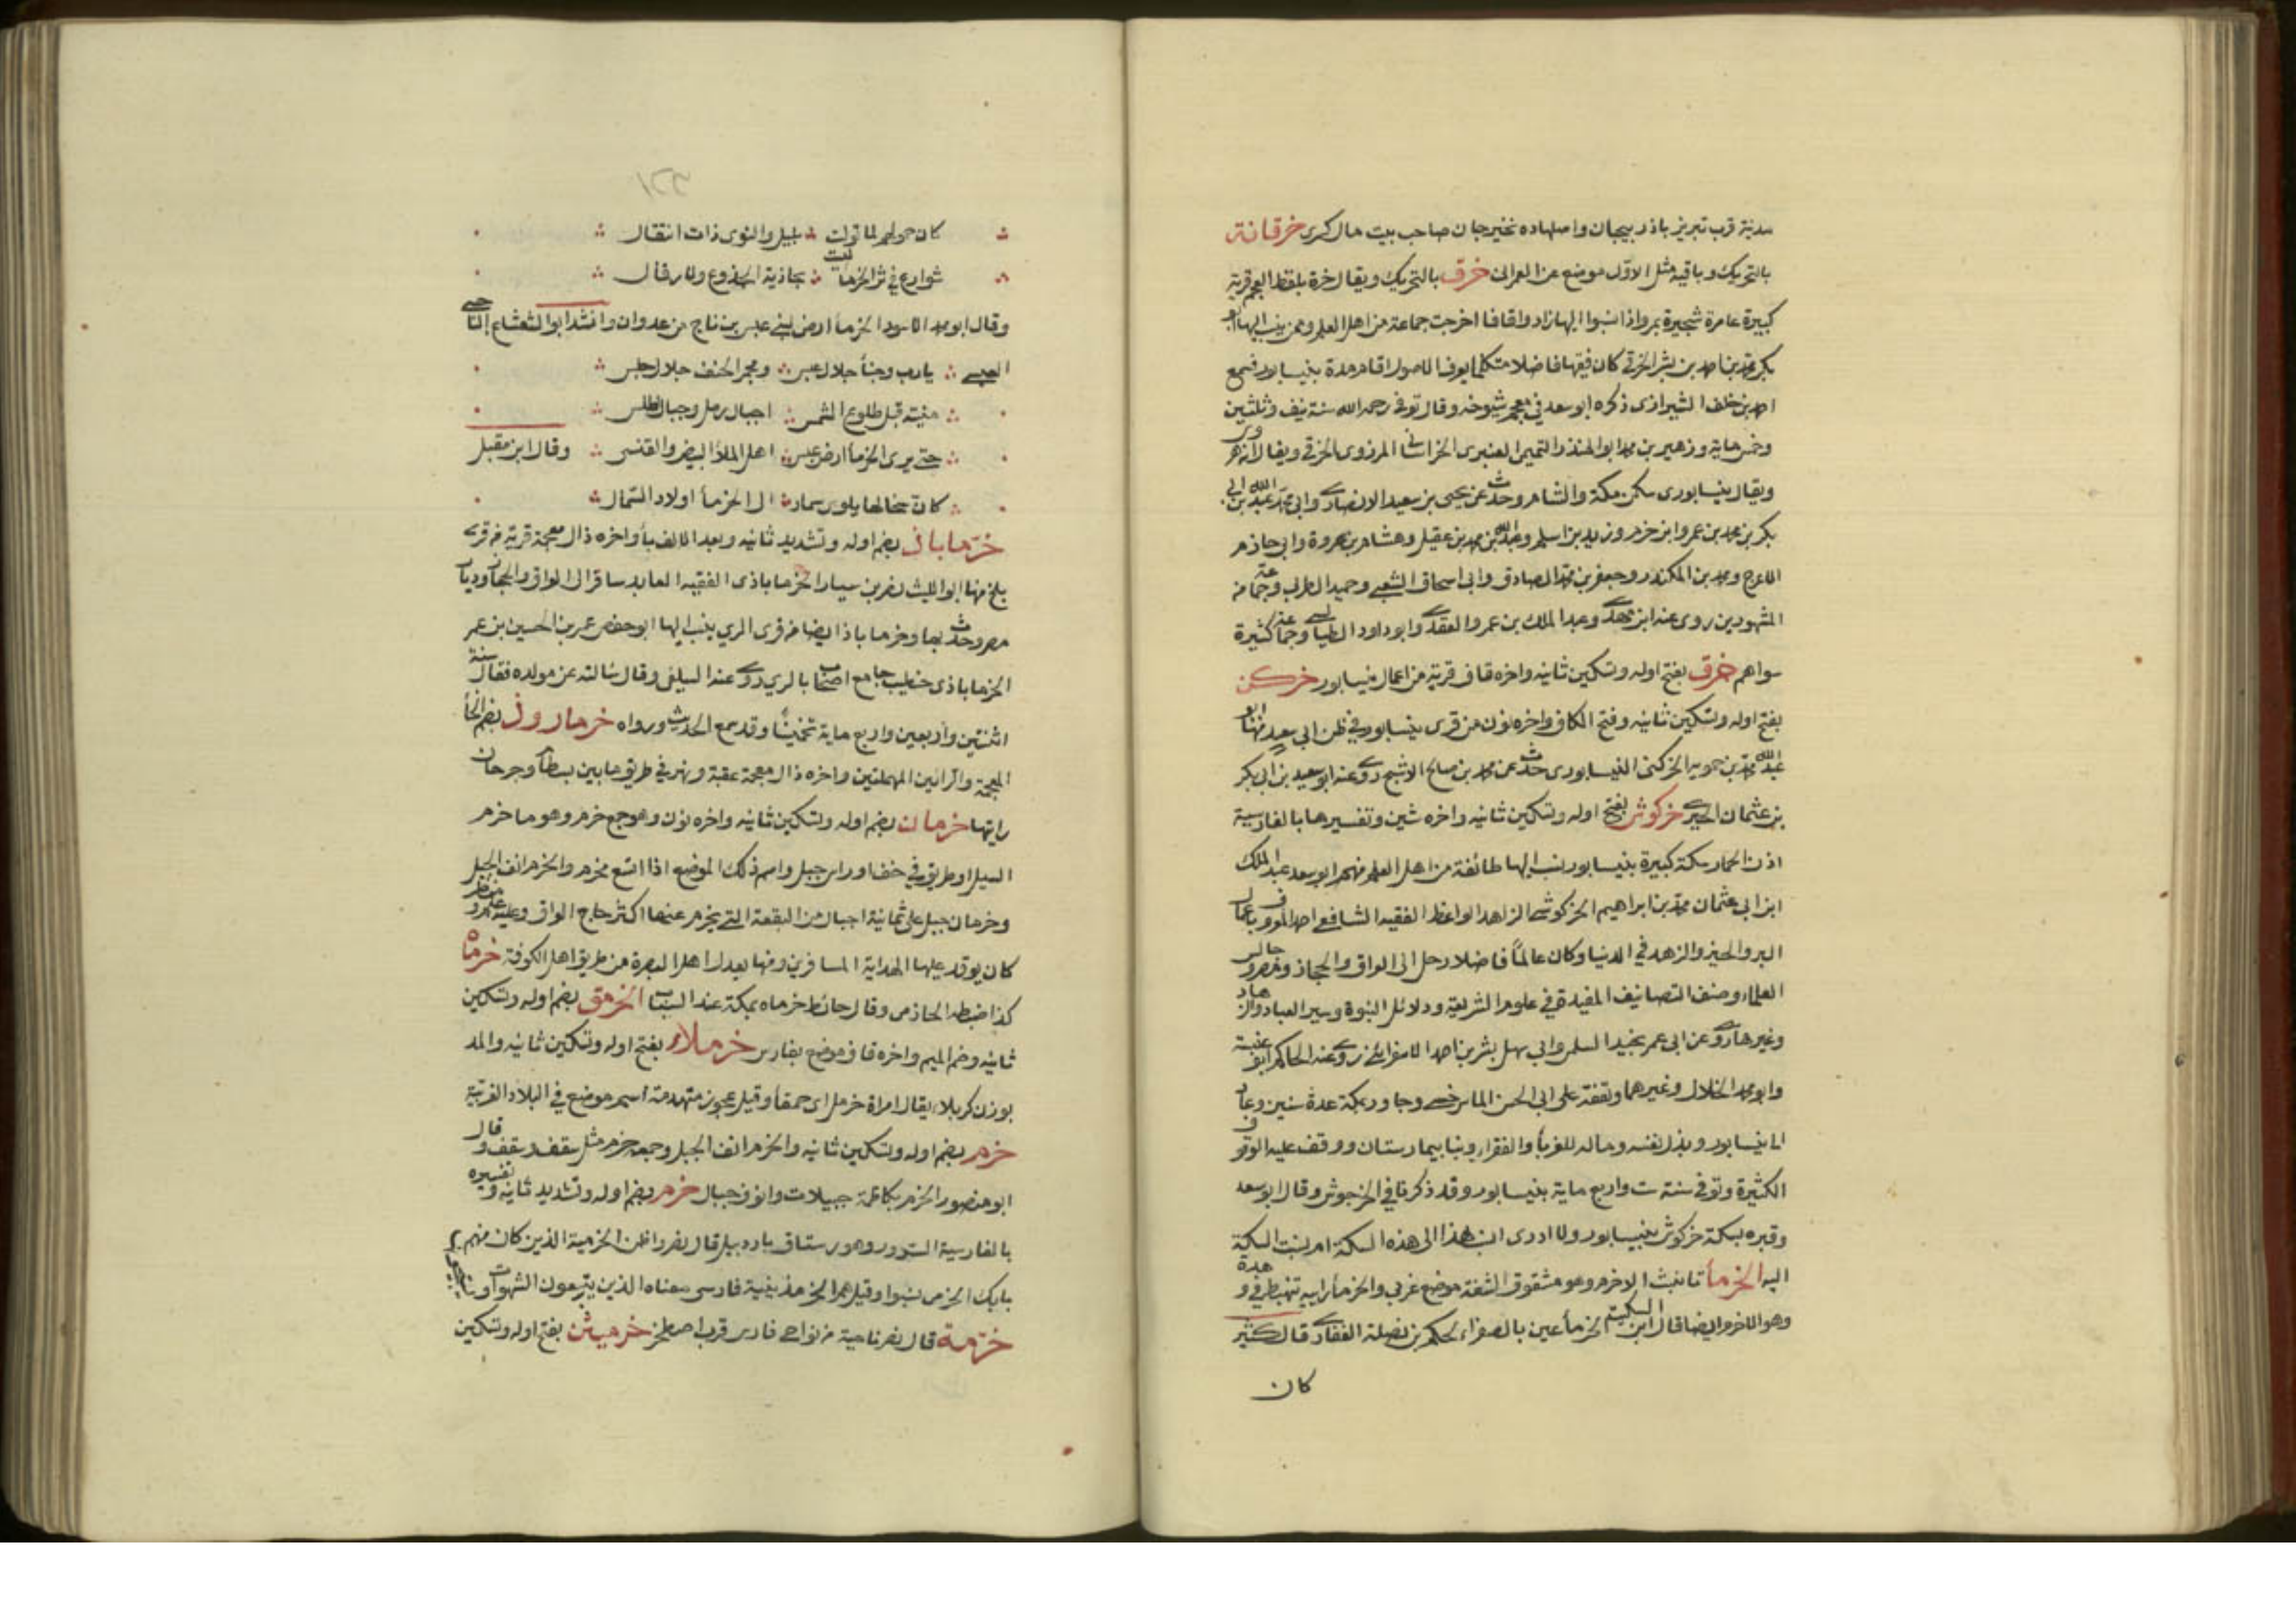 مدينة قرب تبريز باذربيجان واصلها ده نخيرجان صاحب بيت مال كسرى خرقانة
بالتحريك وباقيه مثل الاوّل موضع عن العمرانى خرق بالتحريك ويقال خرة بلفظ العجم قرية
كبيرة عامرة شجيرة بمرو اذا نسبوا اليها زادوا قافا اخرجت جماعة من اهل العلم وممن ينسب اليها ابو
بكر محمد بن احمد بن بشر الخرقى كان فقيها فاضلا متكلما يعرف الاصول اقام مدة بنيسابور فسمع
احمد بن خلف الشيرازى ذكره ابو سعد فى معجم شيوخه وقال توفى رحمه الله سنة نيف وثلثين
وخمس ماية وزهير بن محمد ابو المنذر التميمى العنبرى الخراسانى المروزى الخرقى ويقال انه هروى
ويقال نيسابورى سكن مكة والشام وحدث عن يحيى بن سعيد الانصارى وابى محمد عبد الله بن ابى
بكر بن محمد بن عمرو ابن حزم وزيد بن اسلم وعبد الله بن محمد بن عقيل وهشام بن عروة وابى حازم
الاعرج ومحمد بن المنكدر وجعفر بن محمد الصادق وابى اسحاق الشعبى وحميد الطويل وجماعة من
المشهورين روى عنه ابن مهدى وعبد الملك بن عمرو العقدى وابو داود الطيالسى وجماعة كثيرة
سواهم خرق بفتح اوله وتسكين ثانيه واخره قاف قرية من اعمال نيسابور خركن
بفتح اوله وتسكين ثانيه وفتح الكاف واخره نون من قرى نيسابور فى ظن ابى سعد منها ابو
عبد الله محمد بن حمويه الخركنى النيسابورى حدث عن محمد بن صالح الاشج روى عنه ابو سعيد بن ابى بكر
بن عثمان الحيرى خركوش بفتح اوله وتسكين ثانيه واخره شين وتفسيرها بالفارسية
اذن الحمار سكة كبيرة بنيسابور نسب اليها طائفة من اهل العلم منهم ابو سعد عبد الملك
ابن ابى عثمان محمد بن ابراهيم الخركوشى الزاهد الواعظ الفقيه الشافعى احد المعروف باعمال
البر والخير والزهد فى الدنيا وكان عالماً فاضلا رحل الى العراق والحجاز ومصر وجالس
العلماء وصنف التصانيف المفيدة فى علوم الشريعة ودلائل النبوة وسير العباد والزهاد
وغيرها روى عن ابى عمر بنجيد السلمى وابى سهل بشر بن احمد الاسفرائنى روى عنه الحاكم ابو عبد
وابو محمد الخلال وغيرهما وتفقه على ابى الحسن الماسرخسى وجاور بمكة عدة سنين وعاد
الى نيسابور وبذل نفسه وماله للغربأ والفقراء وبنا بيمارستان ووقف عليه الوقوف
الكثيرة وتوفى سنة ست واربع ماية بنيسابور وقد ذكرنا فى الخرجوش وقال ابو سعد
وقبره بسكة خركوش بنيسابور ولا ادرى انسب هذا الى هذه السكة ام نسبت السكة
اليه الخرمأ تانيث الاخرم وهو مشقوق الشفة موضع عربى والخرمأ رابية تنهبط فى وهدة
وهو الاخرم ايضا قال ابن السكيت الخرمأ عين بالصفراء لحكم بن نضلة الغفارى قال كثير
كان
كان حمولهم لما تولت بليل والنوى ذات انتقال
شوارع فى ثرى الخرما ليست بجاذية الجذوع ولا رقال
وقال ابو محمد الاسود الخرمأ ارض لبنى عبس بن ناج من عدوان وانشد ابو الشعشاع الناجى
العبسى يا رب وجنأ حلال عبس ومجمر الخف حلال جلس
منيته قبل طلوع الشمس اجبال رمل وجبال طلس
حتى يرى الخرمأ ارض عبس اهل الملأ البيض والقلنسى وقال ابن مقبل
كان سخالها بلوى سماد الى الخرمأ اولاد السمال
خرّماباذ بضم اوله وتشديد ثانيه وبعد الالف بأ واخره ذال معجمة قرية من قرى
بلخ منها ابو الليث نصر بن سيار الخرماباذى الفقيه العابد سافر الى العراق والحجاز وديار
مصر وحدث بها وخرماباذ ايضا من قرى الرى ينسب اليها ابو حفص عمر بن الحسين بن عمر
الخرماباذى خطيب جامع اصحاب بالرى روى عنه السلفى وقال سالته عن مولده فقال سنة
اثنتين واربعين واربع ماية تخمينًا وقد سمع الحديث ورواه خرمارود بضم الخأ
المعجمة والرائين المهملتين واخره ذال معجمة عقبة ونهر فى طريق ما بين بسطام وجرجان
رايتها خرمان بضم اوله وتسكين ثانيه واخره نون وهو جمع خرم وهو ما خرم
السيل او طريق فى خف او راس جبل واسم ذلك الموضع اذا اتسع مخرم والخرم انف الجبل
وخرمان جبل على ثمانية اجبال من البقعة التى يحرم عنها اكثر حاج العراق وعليه علم ومنظر
كان يوقد عليها لهداية المسافرين ومنها يعدل اهل البصرة من طريق اهل الكوفة خرماه
كذا ضبطه الحازمى وقال حائط خرماه بمكة عند السباب الخرمق بضم اوله وتسكين
ثانيه وضم الميم واخره قاف موضع بفارس خرملاء بفتح اوله وتسكين ثانيه والمد
بوزن كربلاء يقال امراة خرمل اى حمقأ وقيل عجوز متهدمة اسم موضع فى البلاد الغربية
خرم بضم اوله وتسكين ثانيه والخرم انف الجبل وجمعه خرم مثل سقف وسقف وقال
ابو منصور الخرم بكاظمة جبيلات وانوف جبال خرم بضم اوله وتشديد ثانيه وتفسيره
بالفارسية السرور وهو رستاق باردبيل قال نصر واظن الخرمية الذين كان منهم
بابك الخرمى نسبوا وقيل هم الخرمذينية فارسى معناه الذين يتبعون الشهوات
خرّمة قال نصر ناحية من نواحى فارس قرب اصطخر خرميثن بفتح اوله وتسكين